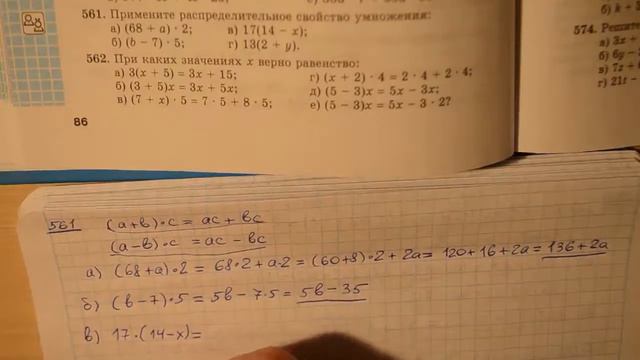 561. Примените распределительное свойство умножения:
а) (68 + a) · 2; в) 17(14 − x);
б) (b − 7) · 5; г) 13(2 + y).
562. При каких значениях x верно равенство:
а) 3(x + 5) = 3x + 15; г) (x + 2) · 4 = 2 · 4 + 2 · 4;
б) (3 + 5)x = 3x + 5x; д) (5 − 3)x = 5x − 3x;
в) (7 + x) · 5 = 7 · 5 + 8 · 5; е) (5 − 3)x = 5x − 3 · 2?
86
б) k +
574. Решите
а) 3x +
б) 6y −
в) 7z +
г) 21t −
561 (a+b)·c = ac + bc
(a−b)·c = ac − bc
а) (68+a)·2 = 68·2+a·2 = (60+8)·2+2a = 120+16+2a = 136+2a
б) (b−7)·5 = 5b − 7·5 = 5b − 35
в) 17·(14−x)=